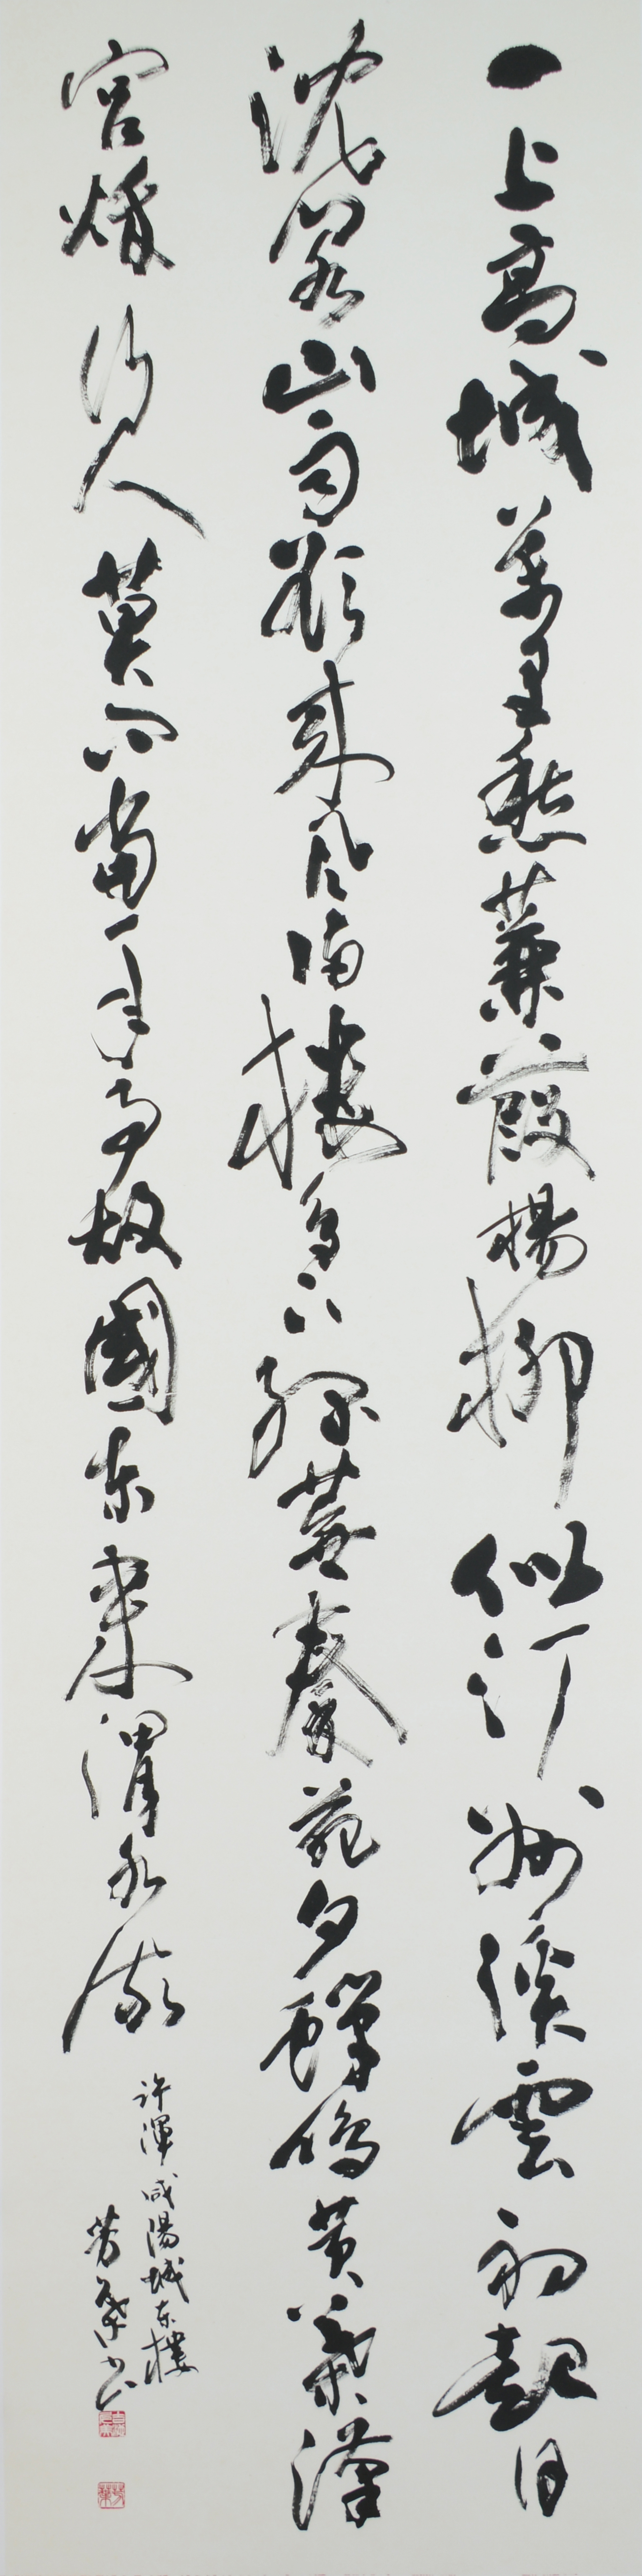 一上高城萬里愁蒹葭楊柳似汀洲溪雲初起日
沈閣山雨欲來風滿樓鳥下綠蕪秦苑夕蟬鳴黃葉漢
宮秋行人莫問當年事故國東来渭水流
許渾咸陽城東樓
芳葉書